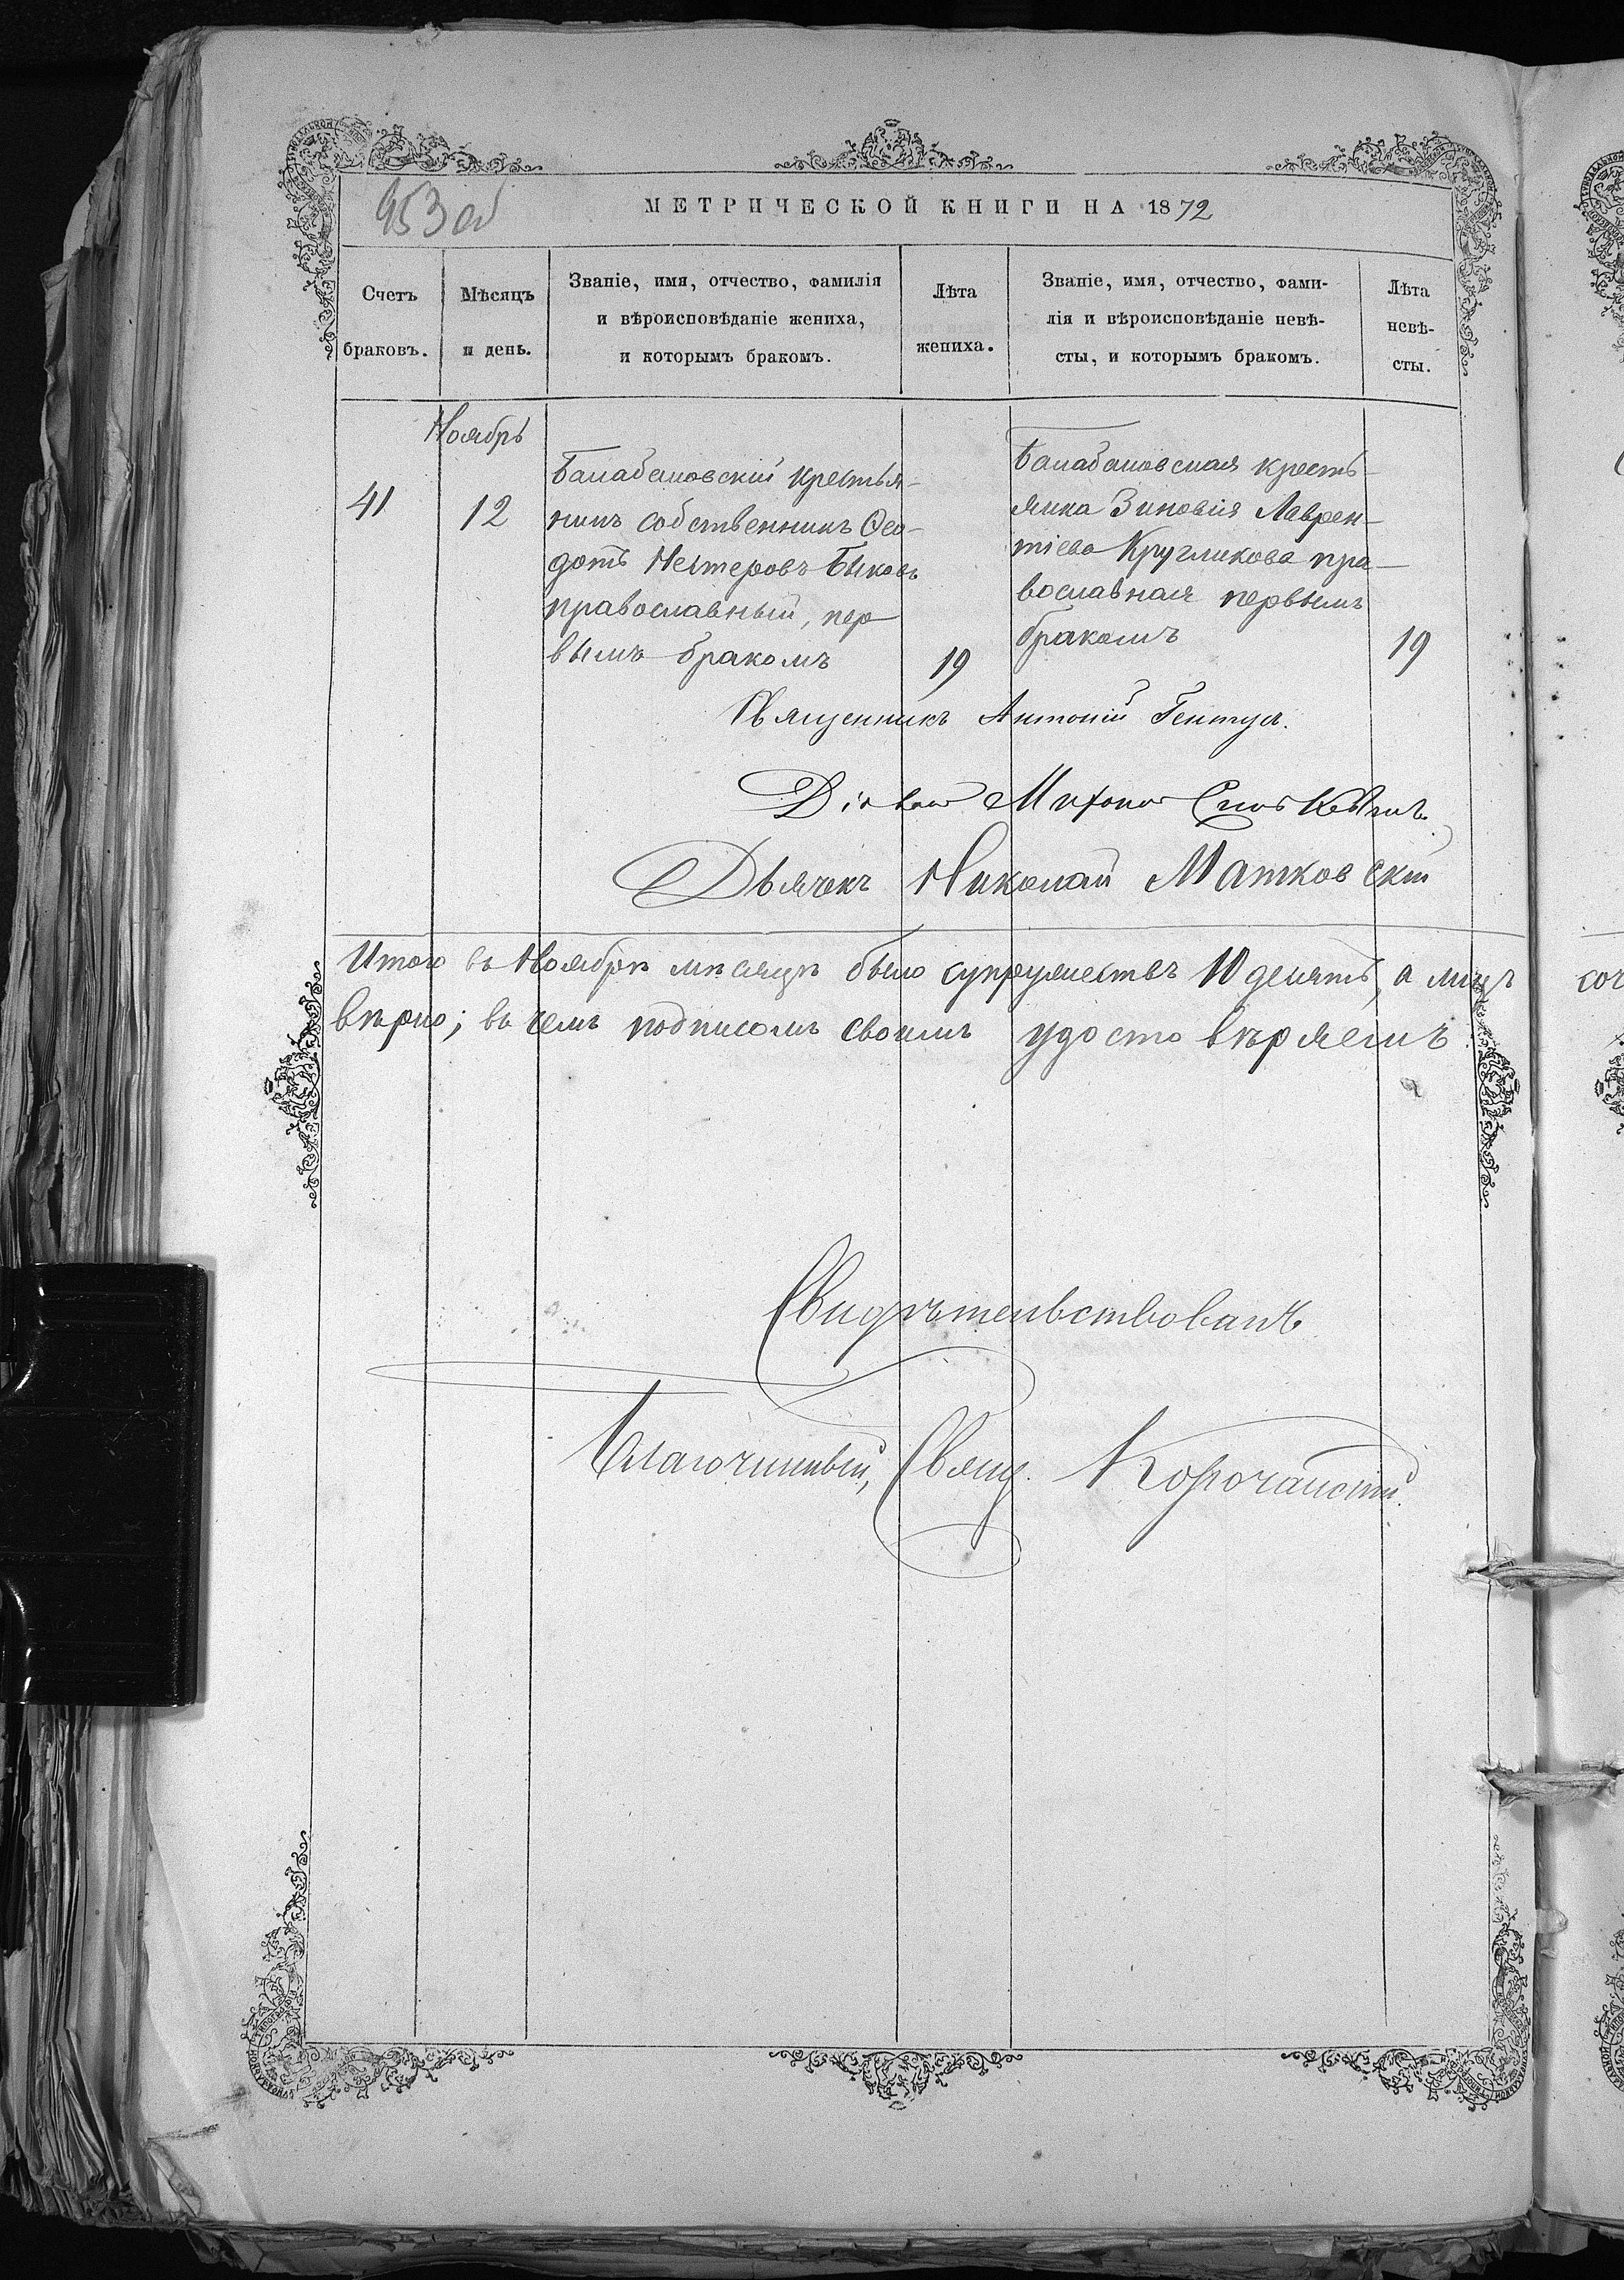 953 об
МЕТРИЧЕСКОЙ КНИГИ НА 1872
Счетъ браковъ.
Мѣсяцъ и день.
Званіе, имя, отчество, фамилія
и вѣроисповѣданіе жениха,
и которымъ бракомъ.
Лѣта жениха.
Званіе, имя, отчество, фами-
лія и вѣроисповѣданіе невѣ-
сты, и которымъ бракомъ.
Лѣта невѣ-
сты.
Ноябрь
41
12
Балабановскій крестья-
нинъ собственникъ Ѳео-
дотъ Нестеровъ Быковъ
православный, пер
вымъ бракомъ
19
Балабановская кресть-
янка Зиновія Лаврен-
тіева Кругликова пра-
вославная первымъ
бракомъ
19
Священникъ Антоній
Діаконъ
Дьячекъ Николай Матковскій
Итого въ Ноябрѣ мѣсяцѣ было супружествъ 10 десять, а лицъ
вѣрно; въ чемъ подписомъ своимъ удостовѣряемъ
Свидѣтельствовалъ
Благочинный, Свящ. Корочанскій.